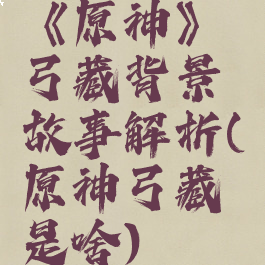 《原神》
弓藏背景
故事解析(
原神弓藏
是啥)